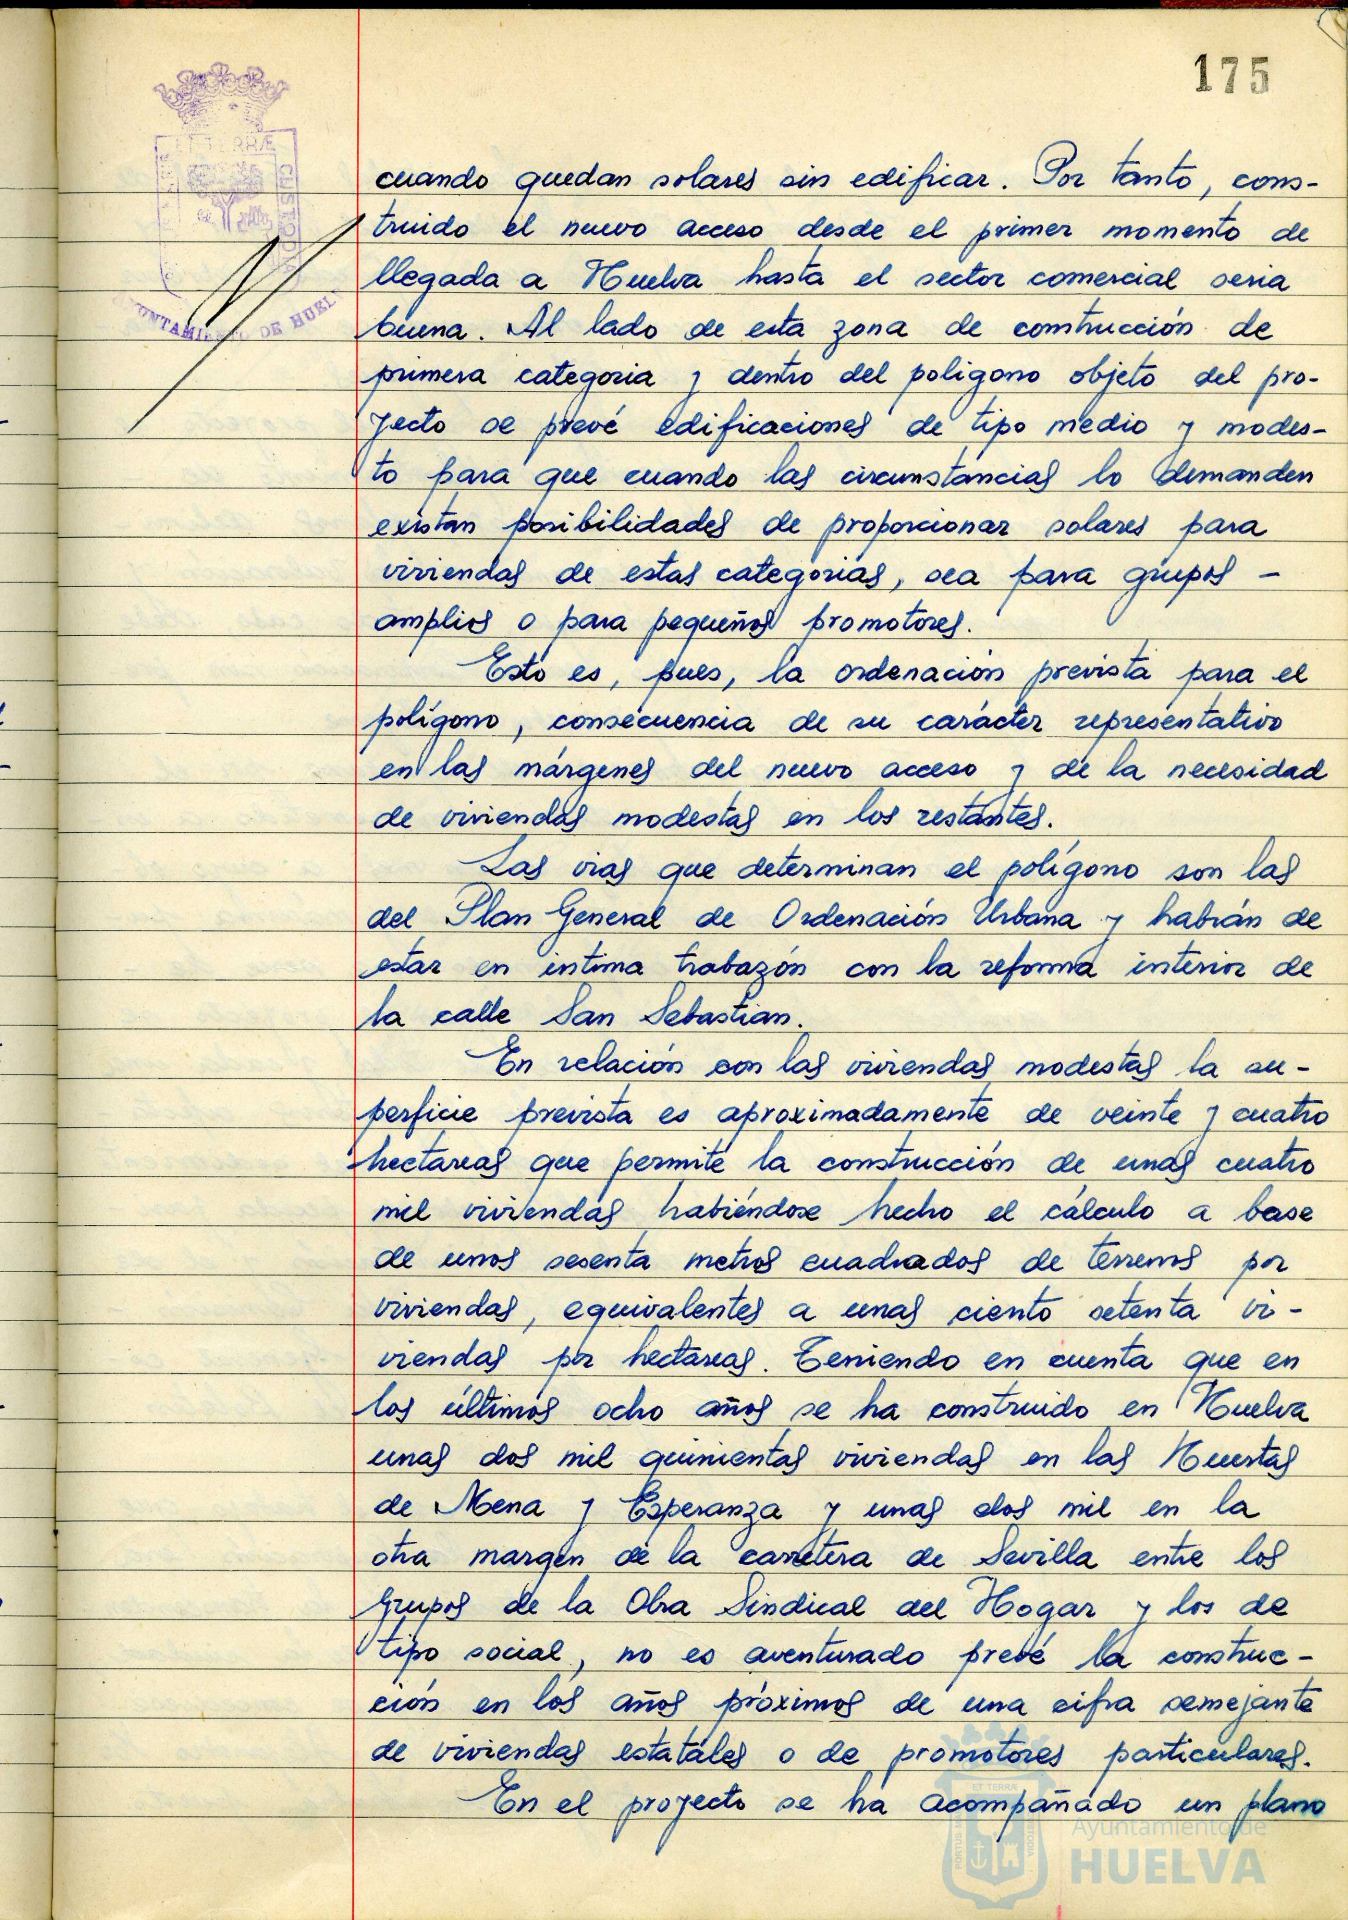 175
ET TERRÆ
CUSTODIA
AYUNTAMIENTO DE HUELVA
cuando quedan solares sin edificar. Por tanto, cons-
truido el nuevo acceso desde el primer momento de
llegada a Huelva hasta el sector comercial seria
buena. Al lado de esta zona de construcción de
primera categoria y dentro del poligono objeto del pro-
yecto se prevé edificaciones de tipo medio y modes-
to para que cuando las circunstancias lo demanden
existan posibilidades de proporcionar solares para
viviendas de estas categorias, sea para grupos -
amplios o para pequeños promotores.
Esto es, pues, la ordenación prevista para el
polígono, consecuencia de su carácter representativo
en las márgenes del nuevo acceso y de la necesidad
de viviendas modestas en los restantes.
Las vias que determinan el polígono son las
del Plan General de Ordenación Urbana y habrán de
estar en intima trabazón con la reforma interior de
la calle San Sebastian.
En relación con las viviendas modestas la su-
perficie prevista es aproximadamente de veinte y cuatro
hectareas que permite la construcción de unas cuatro
mil viviendas habiéndose hecho el cálculo a base
de unos sesenta metros cuadrados de terrenos por
viviendas, equivalentes a unas ciento setenta vi-
viendas por hectareas. Teniendo en cuenta que en
los últimos ocho años se ha construido en Huelva
unas dos mil quinientas viviendas en las Huertas
de Mena y Esperanza y unas dos mil en la
otra margen de la carretera de Sevilla entre los
grupos de la Obra Sindical del Hogar y los de
tipo social, no es aventurado prevé la construc-
ción en los años próximos de una cifra semejante
de viviendas estatales o de promotores particulares.
En el proyecto se ha acompañado un plano
ET TERRÆ
Ayuntamiento de
HUELVA